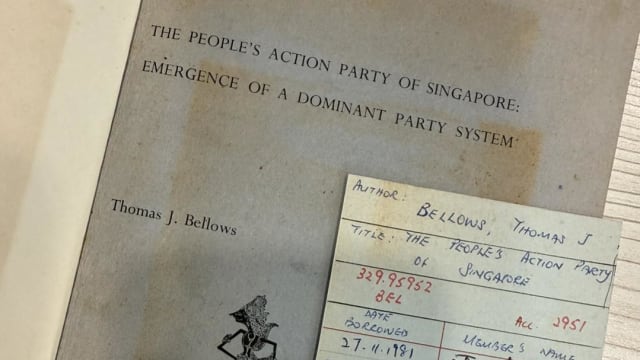 THE PEOPLE'S ACTION PARTY OF SINGAPORE:
EMERGENCE OF A DOMINANT PARTY SYSTEM
Thomas J. Bellows
AUTHOR: BELLOWS, THOMAS J
TITLE: THE PEOPLE'S ACTION PARTY
OF SINGAPORE
329.95952
BEL
ACC. 2951
DATE
BORROWED
MEMBER'S NAME
27.11.1981